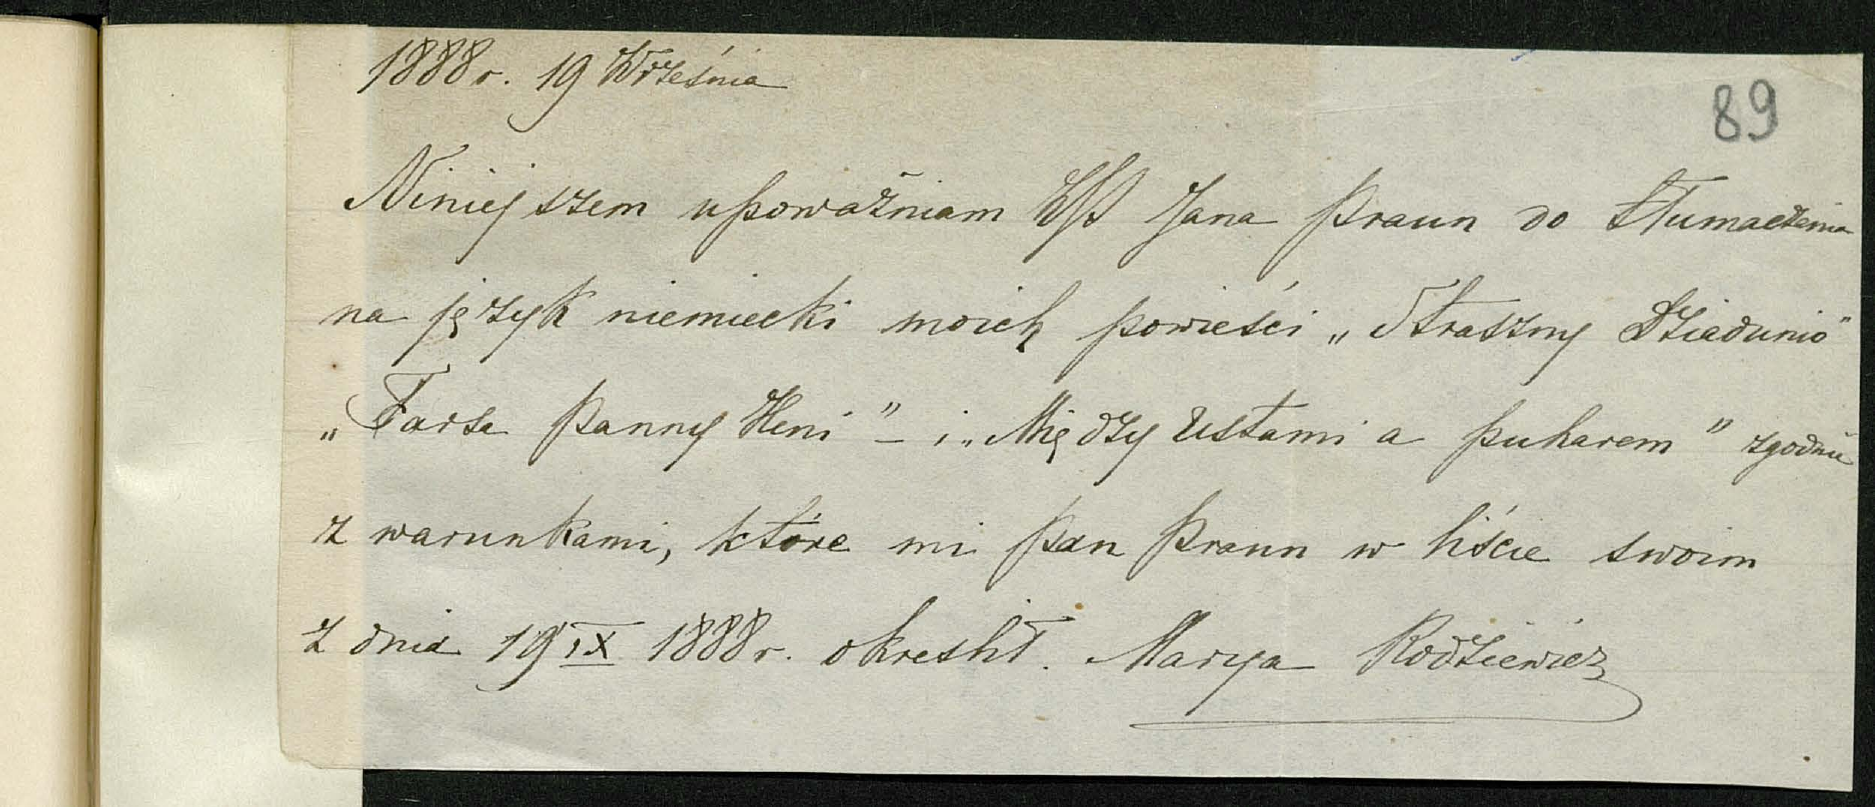 1888 r. 19 Września
89
Niniejszem upoważniam WP Jana Praun do tłumaczenia
na język niemiecki moich powieści „Straszny Dziadunio"
„Farsa Panny Heni" – i „Między Ustami a puharem" zgodnie
z warunkami, które mi pan Praun w liście swoim
z dnia 19 IX 1888 r. okreslił. Marya Rodziewicz